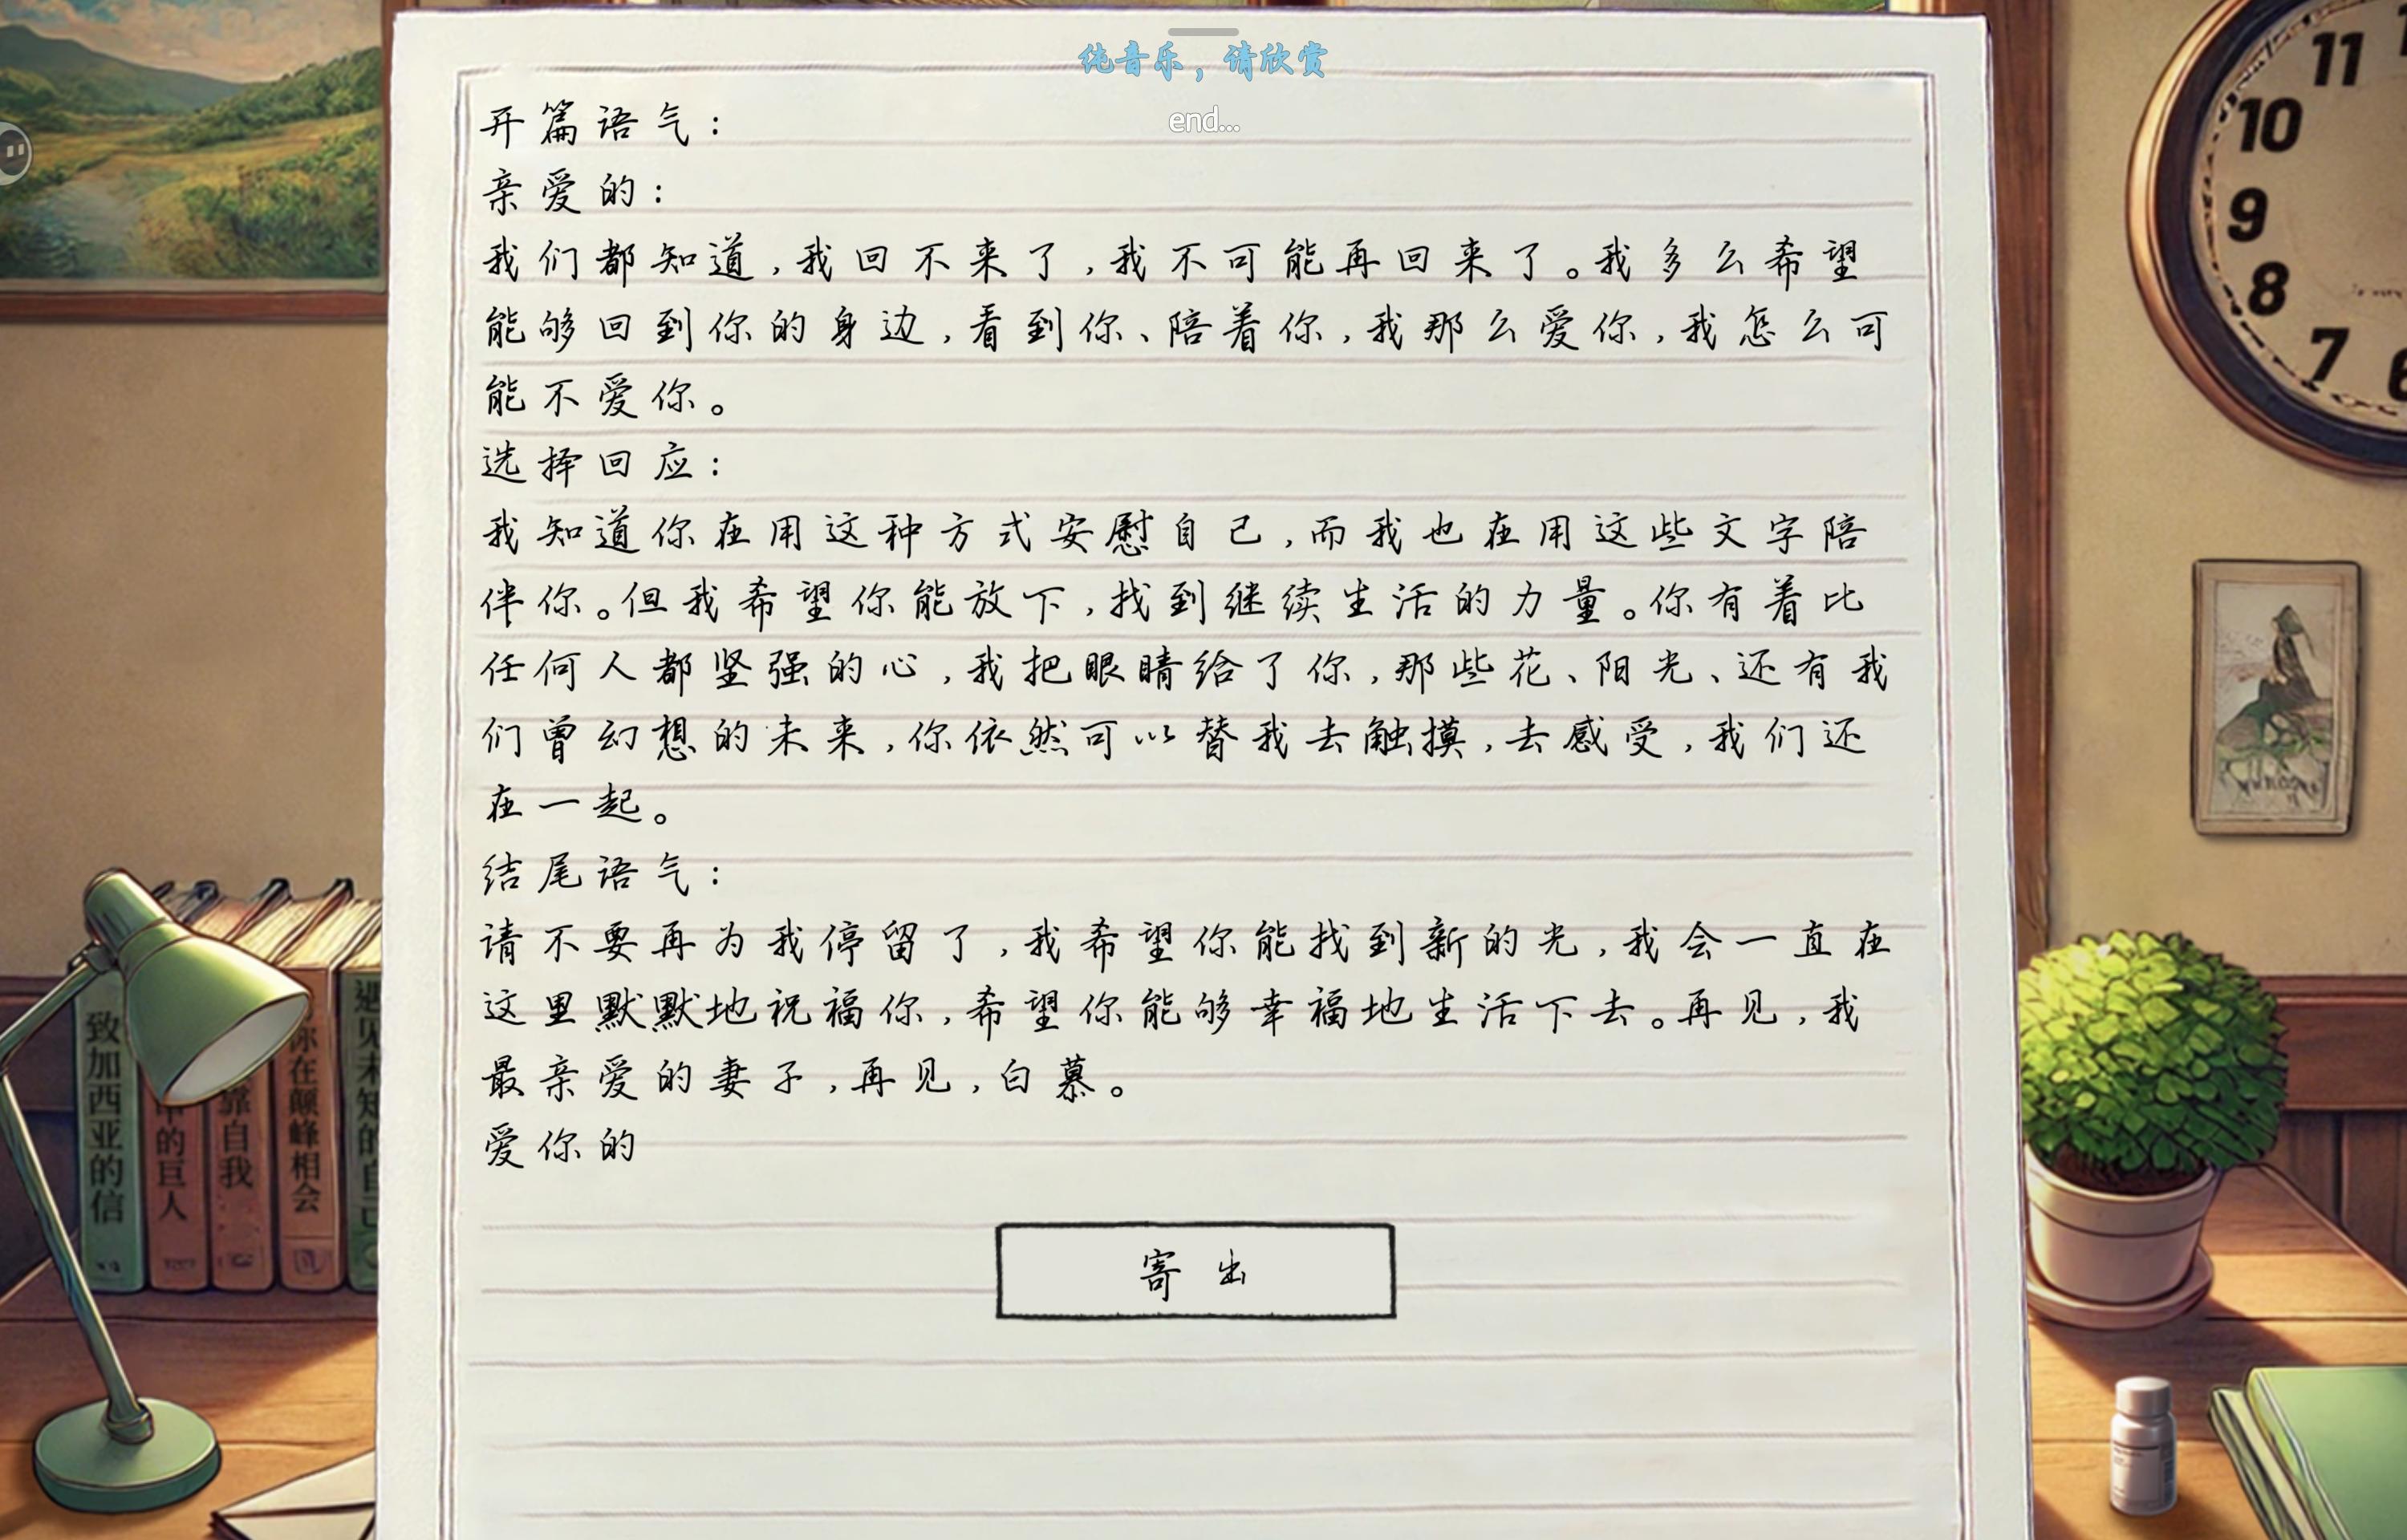 纯音乐，请欣赏
end...
开篇语气：
亲爱的：
我们都知道，我回不来了，我不可能再回来了。我多么希望
能够回到你的身边，看到你、陪着你，我那么爱你，我怎么可
能不爱你。
选择回应：
我知道你在用这种方式安慰自己，而我也在用这些文字陪
伴你。但我希望你能放下，找到继续生活的力量。你有着比
任何人都坚强的心，我把眼睛给了你，那些花、阳光、还有我
们曾幻想的未来，你依然可以替我去触摸，去感受，我们还
在一起。
结尾语气：
请不要再为我停留了，我希望你能找到新的光，我会一直在
这里默默地祝福你，希望你能够幸福地生活下去。再见，我
最亲爱的妻子，再见，白慕。
爱你的
寄出
致加西亚的信
的巨人
靠自我
你在颠峰相会
遇见未知的自己
11
10
9
8
7
6